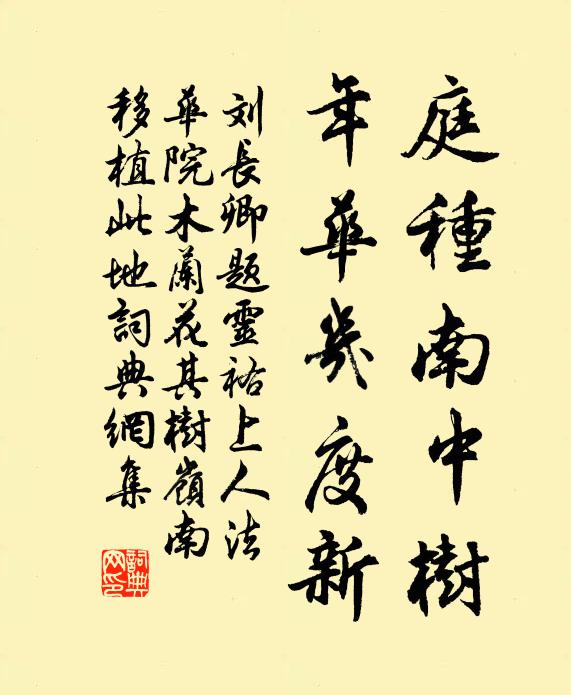 庭種南中樹
年華幾度新
刘長卿題靈祐上人法
華院木蘭花其樹嶺南
移植此地詞典網集
詞典
网印